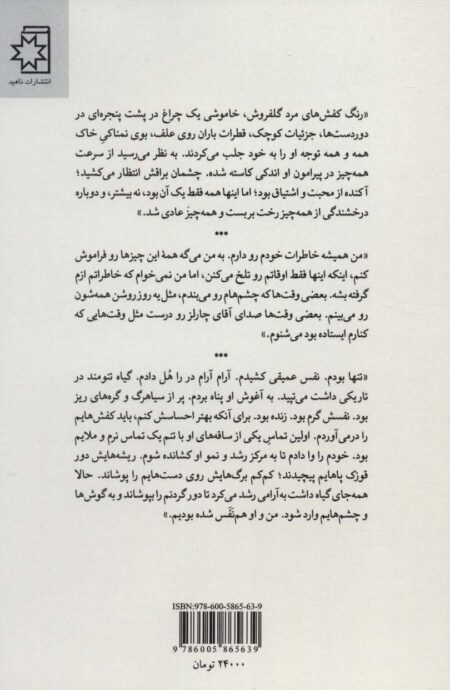 انتشارات ناهید
«رنگ کفش‌های مرد گلفروش، خاموشی یک چراغ در پشت پنجره‌ای در
دوردست‌ها، جزئیات کوچک، قطرات باران روی علف، بوی نمناکیِ خاک
همه و همه توجه او را به خود جلب می‌کردند. به نظر می‌رسید از سرعت
همه‌چیز در پیرامون او اندکی کاسته شده. چشمان براقش انتظار می‌کشید؛
آکنده از محبت و اشتیاق بود؛ اما اینها همه فقط یک آن بود، نه بیشتر، و دوباره
درخشندگی از همه‌چیز رخت بربست و همه‌چیز عادی شد.»
***
«من همیشه خاطرات خودم رو دارم. به من می‌گه همهٔ این چیزها رو فراموش
کنم، اینکه اینها فقط اوقاتم رو تلخ می‌کنن، اما من نمی‌خوام که خاطراتم ازم
گرفته بشه. بعضی وقت‌ها که چشم‌هام رو می‌بندم، مثل یه روز روشن همه‌شون
رو می‌بینم. بعضی وقت‌ها صدای آقای چارلز رو درست مثل وقت‌هایی که
کنارم ایستاده بود می‌شنوم.»
***
«تنها بودم. نفس عمیقی کشیدم. آرام آرام در را هُل دادم. گیاه تنومند در
تاریکی داشت می‌تپید. به آغوش او پناه بردم. پر از سیاهرگ و گره‌های ریز
بود. نفسش گرم بود. زنده بود. برای آنکه بهتر احساسش کنم، باید کفش‌هایم
را درمی‌آوردم. اولین تماسِ یکی از ساقه‌های او با تنم یک تماس نرم و ملایم
بود. خودم را وا دادم تا به مرکز رشد و نمو او کشانده شوم. ریشه‌هایش دور
قوزک پاهایم پیچیدند؛ کم‌کم برگ‌هایش روی دست‌هایم را پوشاند. حالا
همه‌جای گیاه داشت به‌آرامی رشد می‌کرد تا دور گردنم را بپوشاند و به گوش‌ها
و چشم‌هایم وارد شود. من و او هم‌نَفَس شده بودیم.»
ISBN:978-600-5865-63-9
9 786005 865639
۲۴۰۰۰ تومان